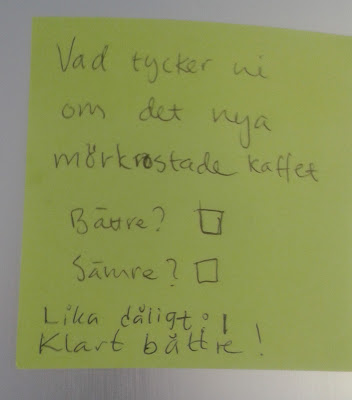 Vad tycker ni
om det nya
mörkrostade kaffet
Bättre? ☐
Sämre? ☐
Lika dåligt: |
Klart bättre!